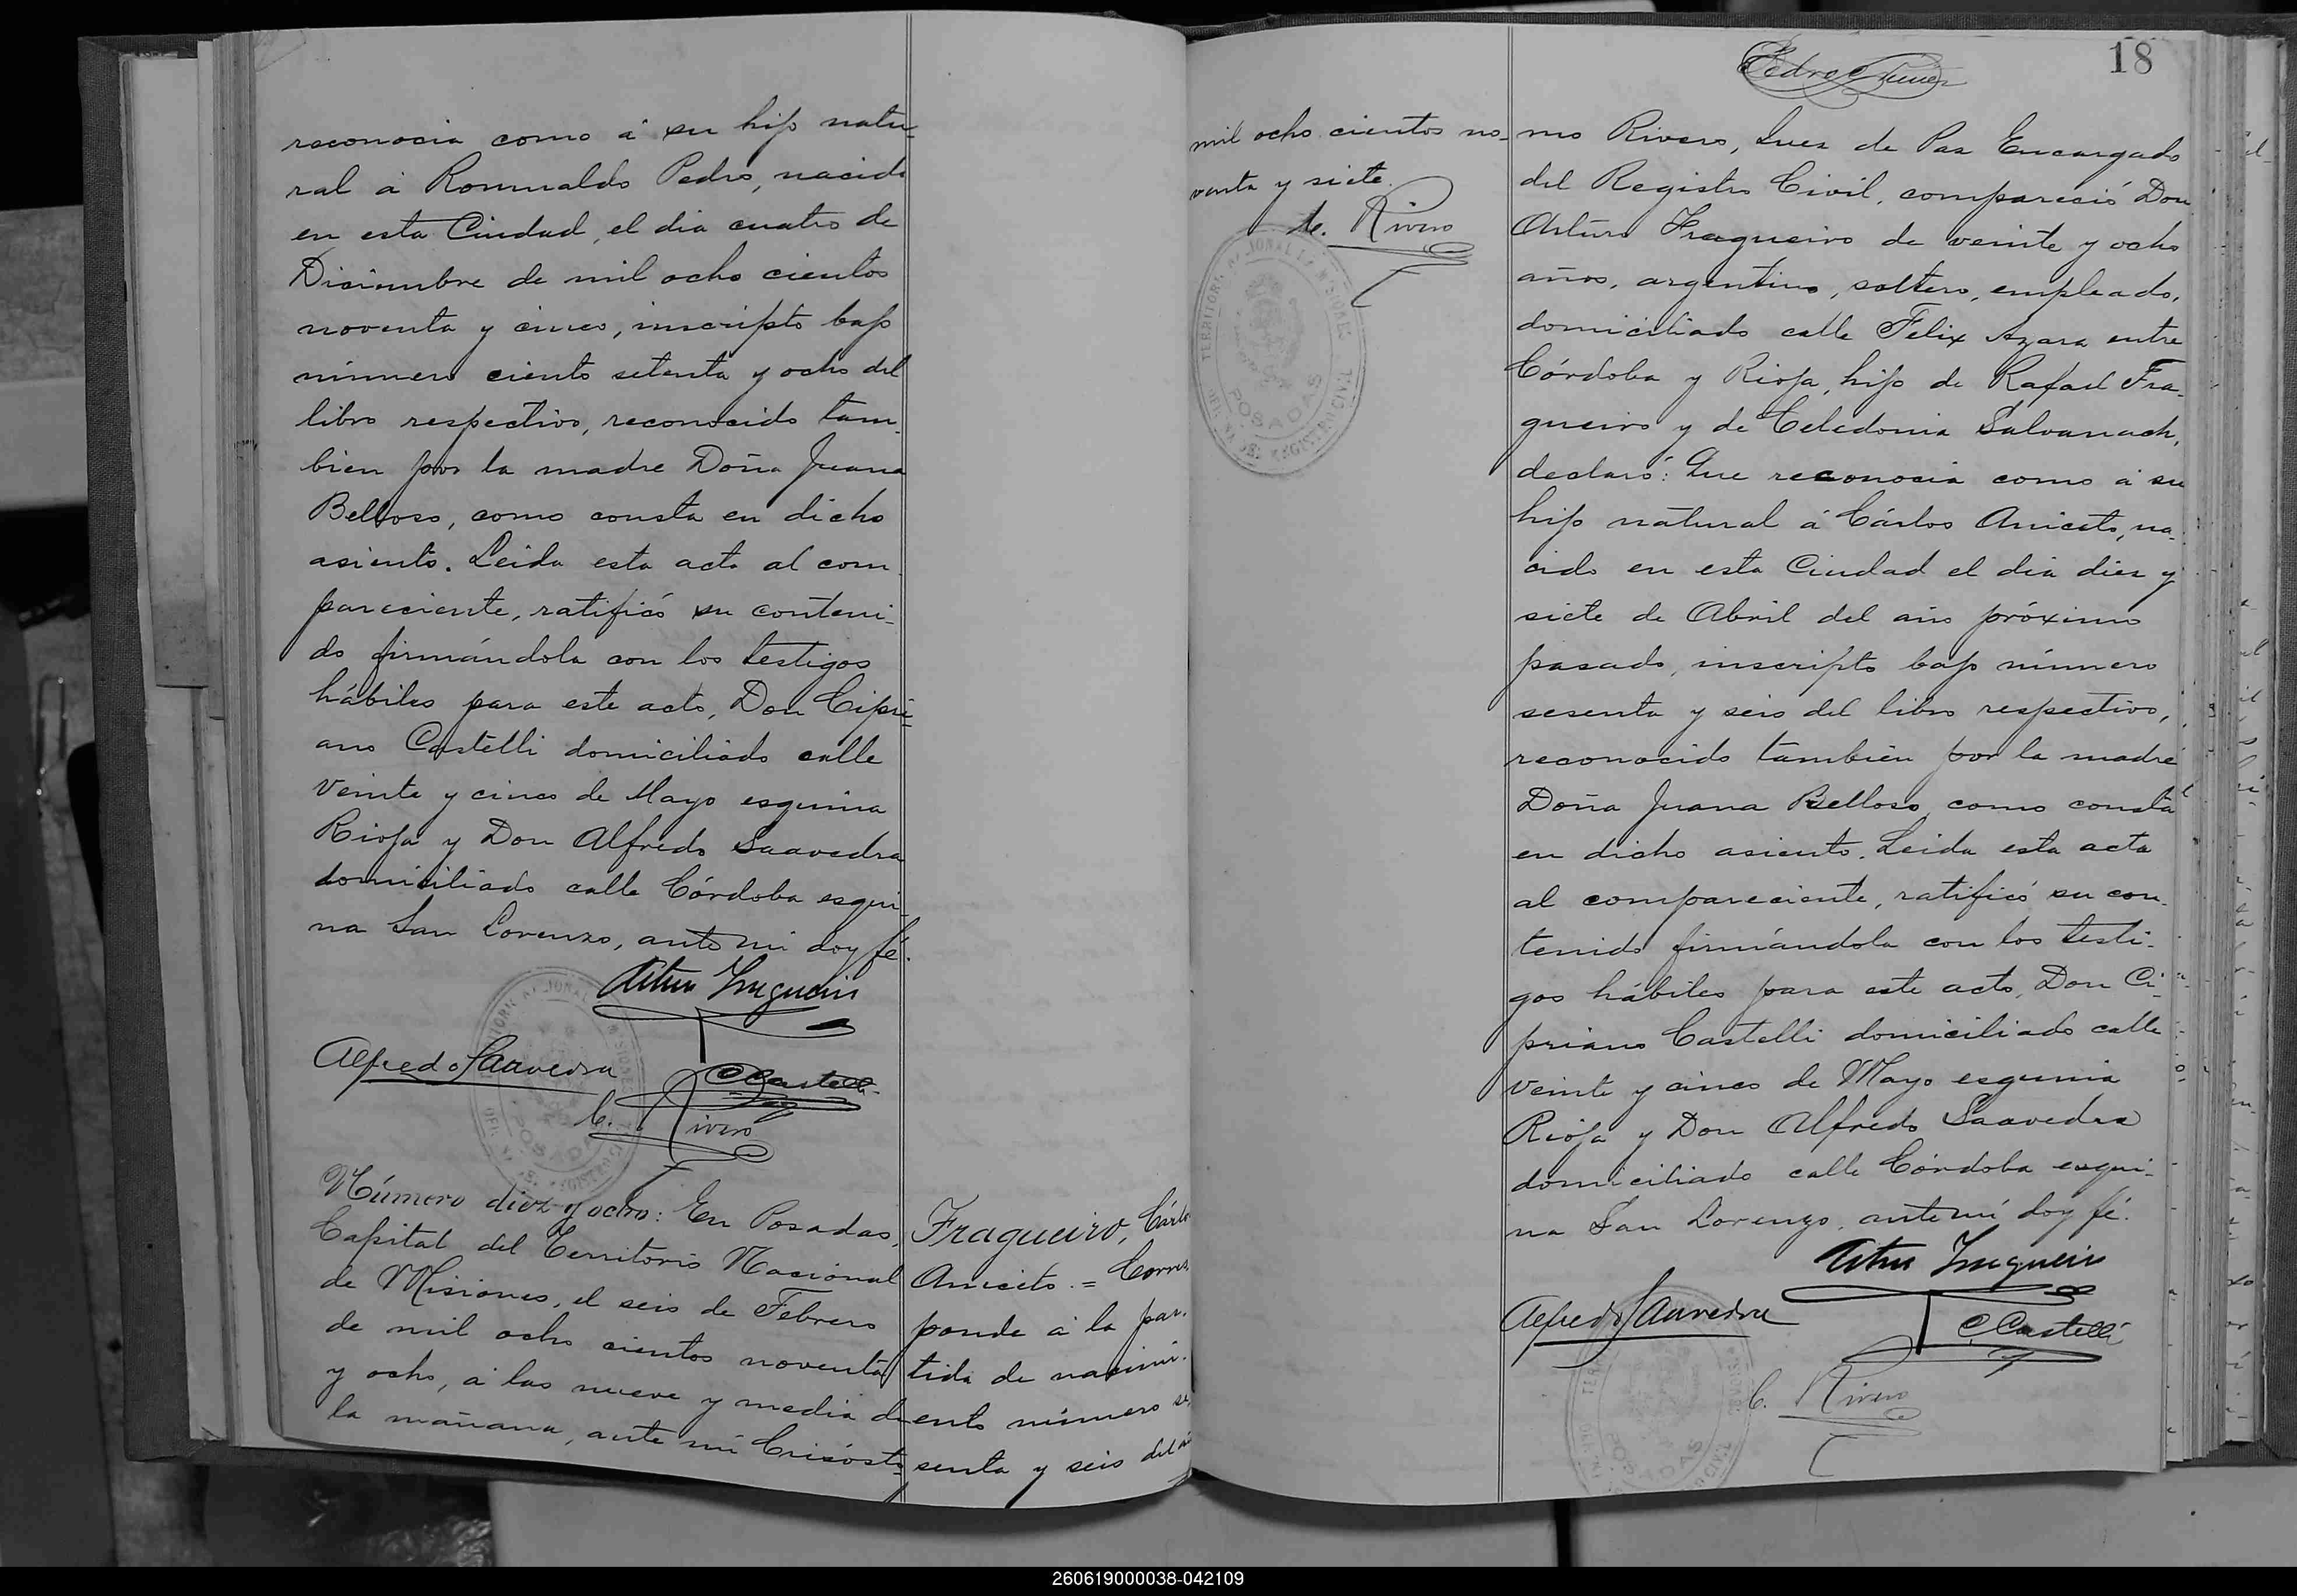 reconocia como á su hijo natu-
ral á Romualdo Pedro, nacido
en esta Ciudad, el dia cuatro de
Diciembre de mil ocho cientos
noventa y cinco, inscripto bajo
número ciento setenta y ocho del
libro respectivo, reconocido tam-
bien por la madre Doña Juana
Belloso, como consta en dicho
asiento. Leida esta acta al com-
pareciente, ratificó su conteni-
do firmándola con los testigos
hábiles para este acto, Don Cipri-
ano Castelli domiciliado calle
Veinte y cinco de Mayo esquina
Rioja y Don Alfredo Saavedra
domiciliado calle Córdoba esqui-
na San Lorenzo, ante mi doy fé.
Arturo Fragueiro
Alfredo Saavedra
C Castelli
C. Rivero
Número diez y ocho: En Posadas,
Capital del Territorio Nacional
de Misiones, el seis de Febrero
de mil ocho cientos noventa
y ocho, á las nueve y media de
la mañana, ante mi Crisósto-
Fragueiro, Cárlos
Aniceto. = Corres
ponde á la par-
tida de nacimi-
ento número se-
senta y seis del
mil ocho cientos no-
venta y siete.
C. Rivero
TERRITORIO NACIONAL DE MISIONES
POSADAS
REGISTRO CIVIL
18
mo Rivero, Juez de Paz Encargado
del Registro Civil, compareció Don
Arturo Fragueiro de veinte y ocho
años, argentino, soltero, empleado,
domiciliado calle Felix Azara entre
Córdoba y Rioja, hijo de Rafael Fra-
gueiro y de Celedonia Salvanach,
declaró: Que reconocia como á su
hijo natural á Cárlos Aniceto, na-
cido en esta Ciudad el dia diez y
siete de Abril del año próximo
pasado, inscripto bajo número
sesenta y seis del libro respectivo,
reconocido tambien por la madre
Doña Juana Belloso, como consta
en dicho asiento. Leida esta acta
al compareciente, ratificó su con-
tenido firmándola con los testi-
gos hábiles para este acto, Don Ci-
priano Castelli domiciliado calle
veinte y cinco de Mayo esquina
Rioja y Don Alfredo Saavedra
domiciliado calle Córdoba esqui-
na San Lorenzo, ante mi doy fé.
Arturo Fragueiro
Alfredo Saavedra
C. Castelli
C. Rivero
260619000038-042109